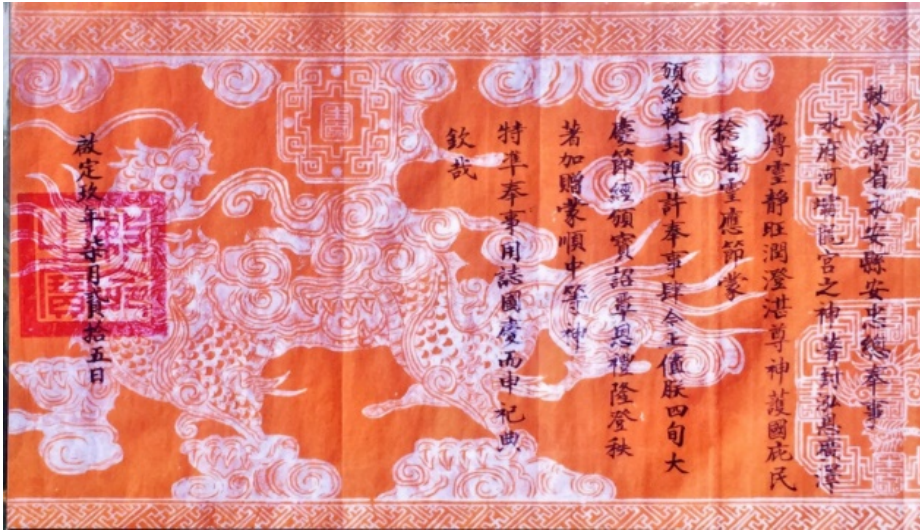 敕沙省永安縣安忠總奉事
水府河院宮之神曾封泓恩廣澤
泓博靈靜旺潤澄湛尊神護國庇民
稔著靈應節蒙
頒給敕封準許奉事肆今正值朕四旬大
慶節經頒寶詔覃恩禮隆登秩
著加贈蒙順中等神
特準奉事用誌國慶而申祀典
欽哉
啟定玖年柒月貳拾五日